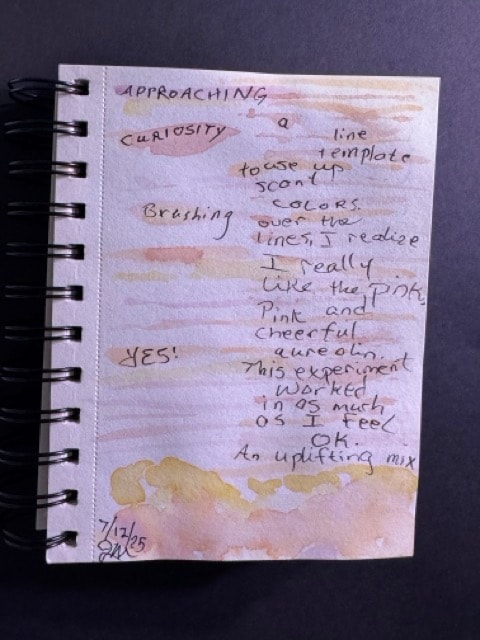 APPROACHING
CURIOSITY a line
template
to use up
scant
COLORS.
Brushing over the
lines, I realize
I really
like the pink.
Pink and
cheerful
YES! aureolin.
This experiment
worked
in as much
as I feel
OK.
An uplifting mix
7/12/25